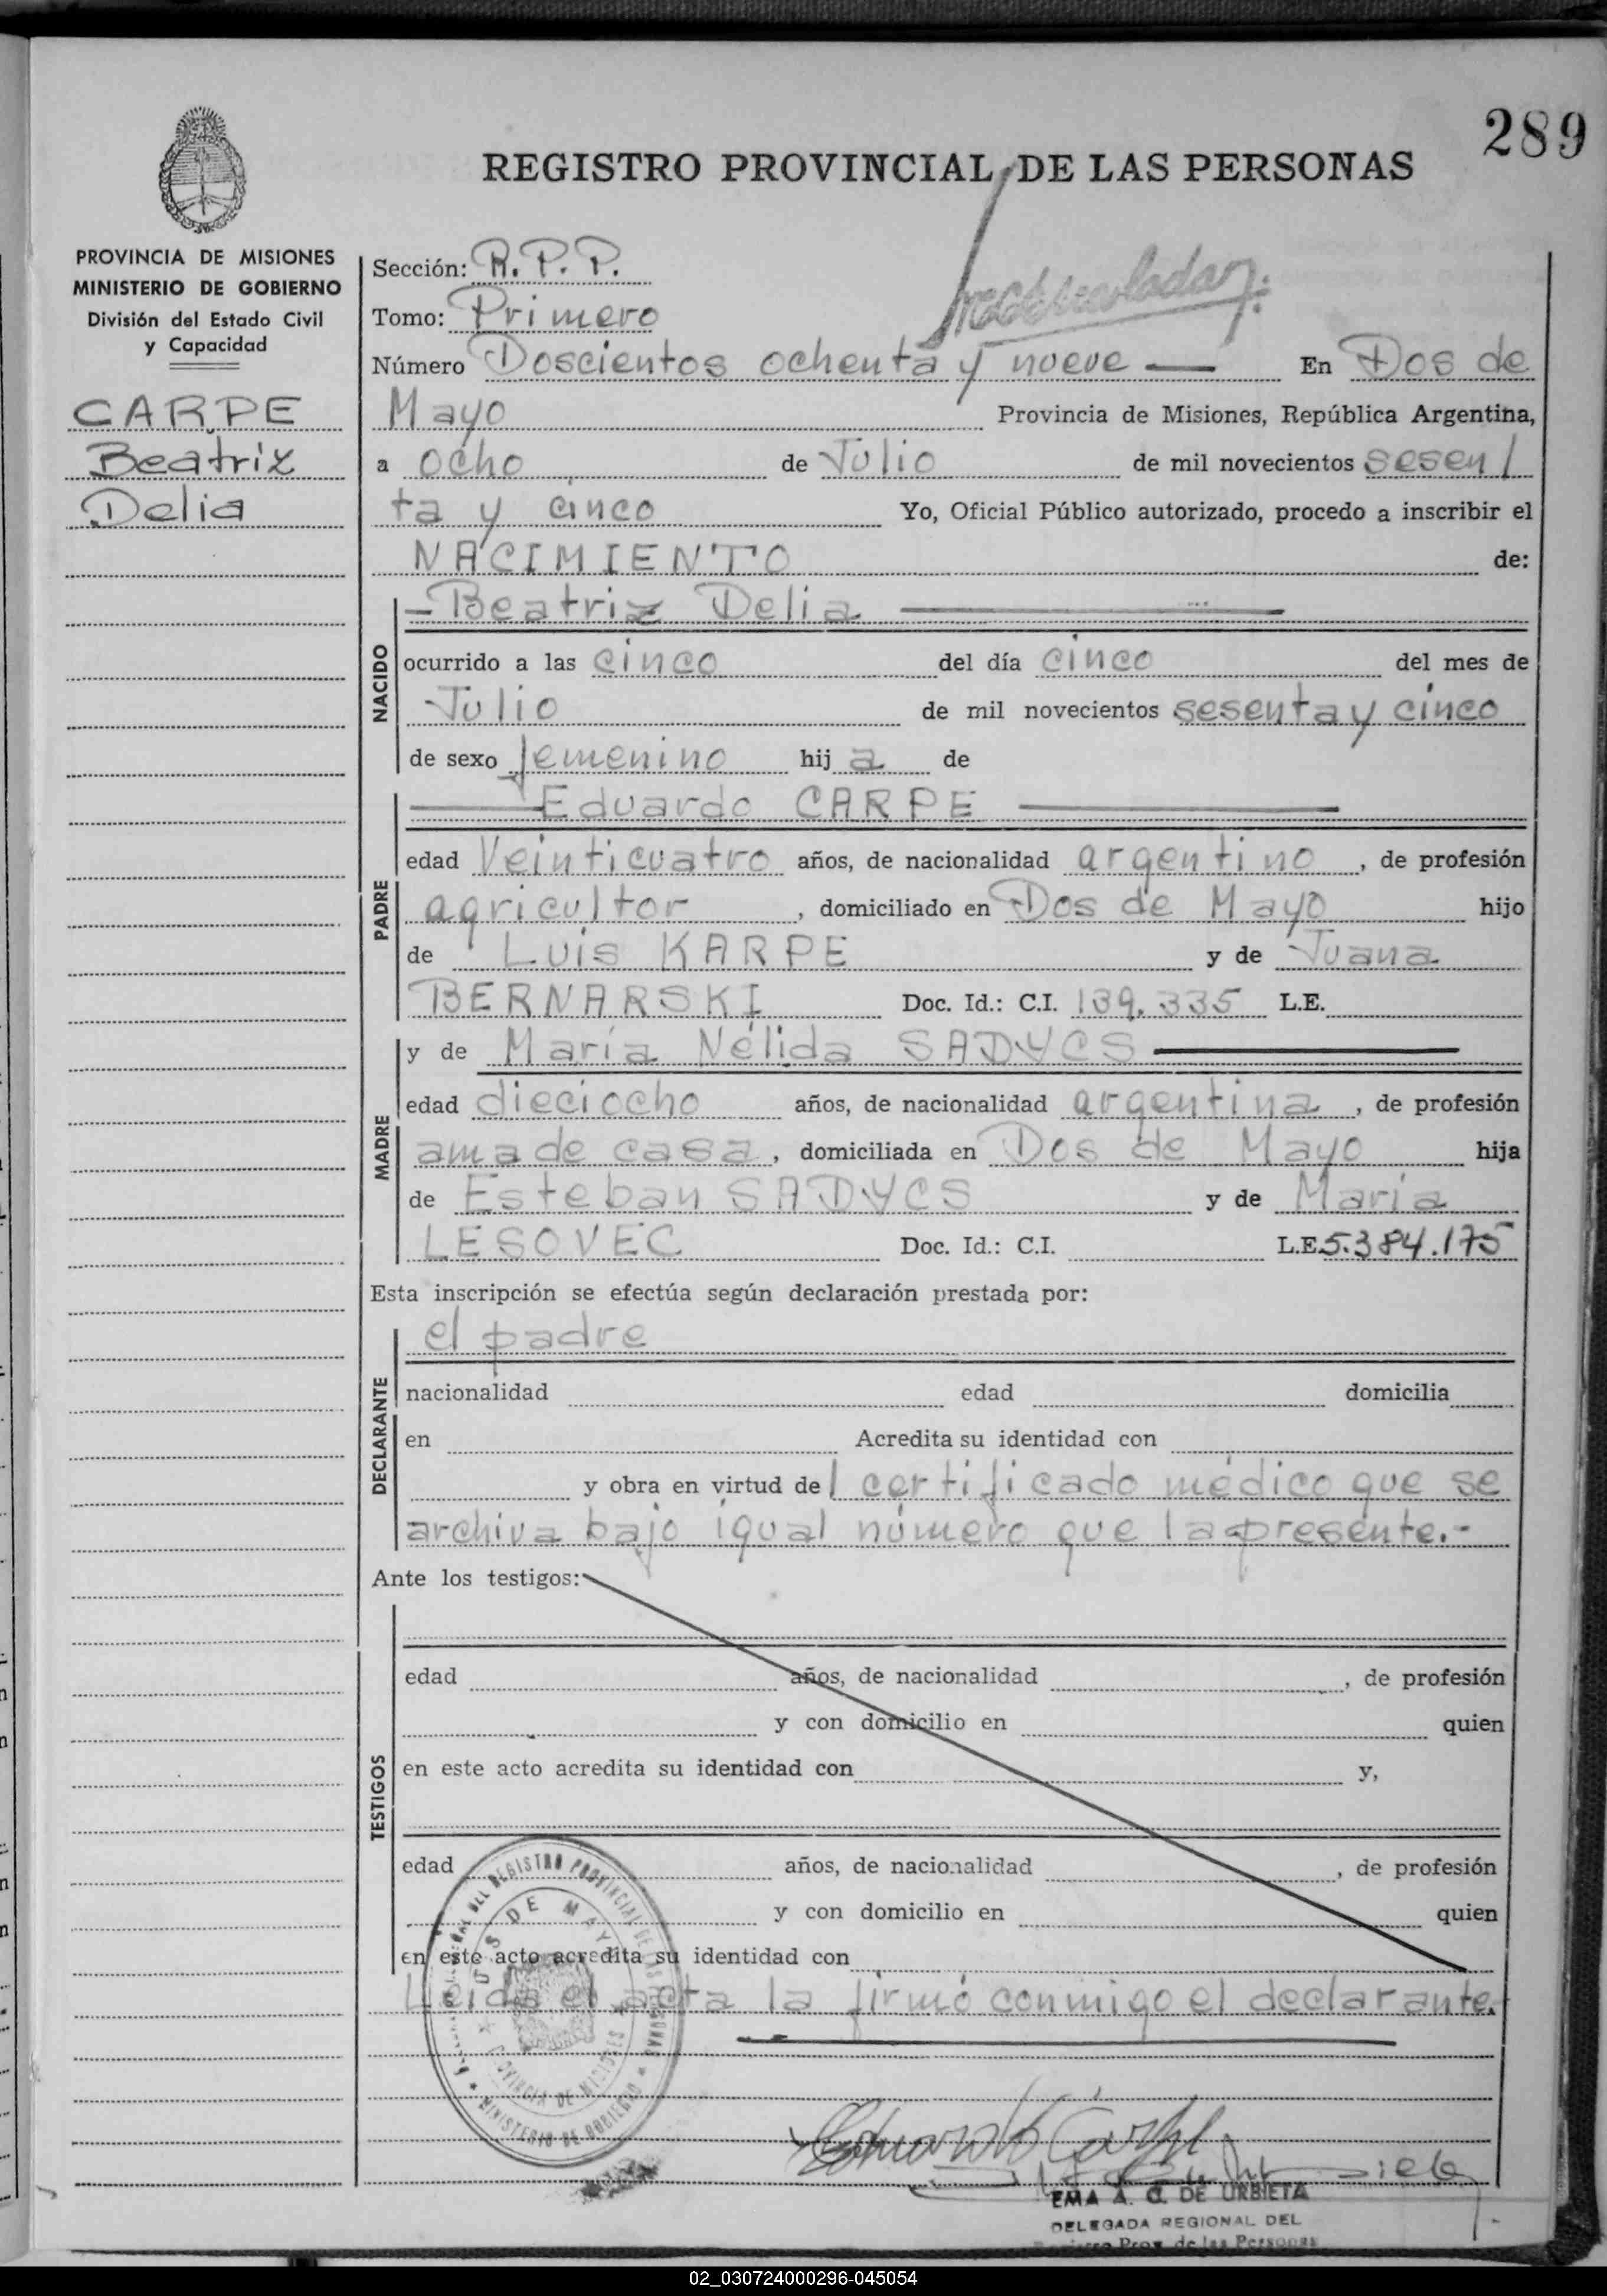 289
REGISTRO PROVINCIAL DE LAS PERSONAS
PROVINCIA DE MISIONES
MINISTERIO DE GOBIERNO
División del Estado Civil
y Capacidad
CARPE
Beatriz
Delia
Sección: R. P. P.
Tomo: Primero
Número Doscientos ochenta y nueve — En Dos de
Mayo Provincia de Misiones, República Argentina,
a ocho de Julio de mil novecientos sesen/
ta y cinco Yo, Oficial Público autorizado, procedo a inscribir el
NACIMIENTO de:
NACIDO
- Beatriz Delia —
ocurrido a las cinco del día cinco del mes de
Julio de mil novecientos sesenta y cinco
de sexo femenino hij a de
PADRE
— Eduardo CARPE —
edad Veinticuatro años, de nacionalidad argentino, de profesión
agricultor, domiciliado en Dos de Mayo hijo
de Luis KARPE y de Juana
BERNARSKI Doc. Id.: C.I. 139.335 L.E.
MADRE
y de María Nélida SADYCS —
edad dieciocho años, de nacionalidad argentina, de profesión
ama de casa, domiciliada en Dos de Mayo hija
de Esteban SADYCS y de María
LESOVEC Doc. Id.: C.I. L.E. 5.384.175
Esta inscripción se efectúa según declaración prestada por:
DECLARANTE
el padre
nacionalidad edad domicilia
en Acredita su identidad con
y obra en virtud del certificado médico que se
archiva bajo igual número que la presente.-
Ante los testigos:
TESTIGOS
edad años, de nacionalidad , de profesión
y con domicilio en quien
en este acto acredita su identidad con y,
edad años, de nacionalidad , de profesión
y con domicilio en quien
en este acto acredita su identidad con
Leída el acta la firmó conmigo el declarante.
DEL REGISTRO PROVINCIAL DE LAS PERSONAS
DOS DE MAYO
PROVINCIA DE MISIONES
MINISTERIO DE GOBIERNO
Eduardo Carpe
EMA A. C. DE URBIETA
DELEGADA REGIONAL DEL
Registro Prov. de las Personas
02_030724000296-045054